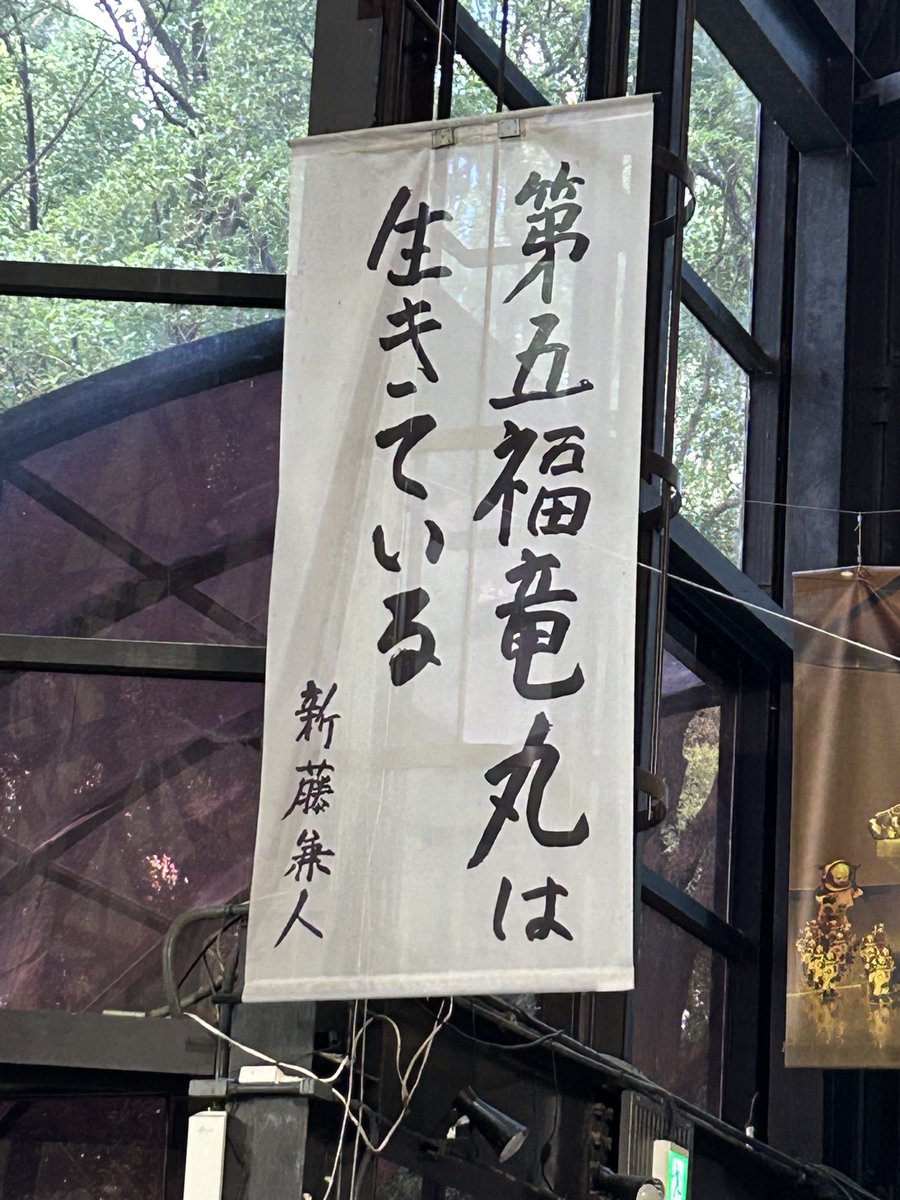 第五福竜丸は
生きている
新藤兼人